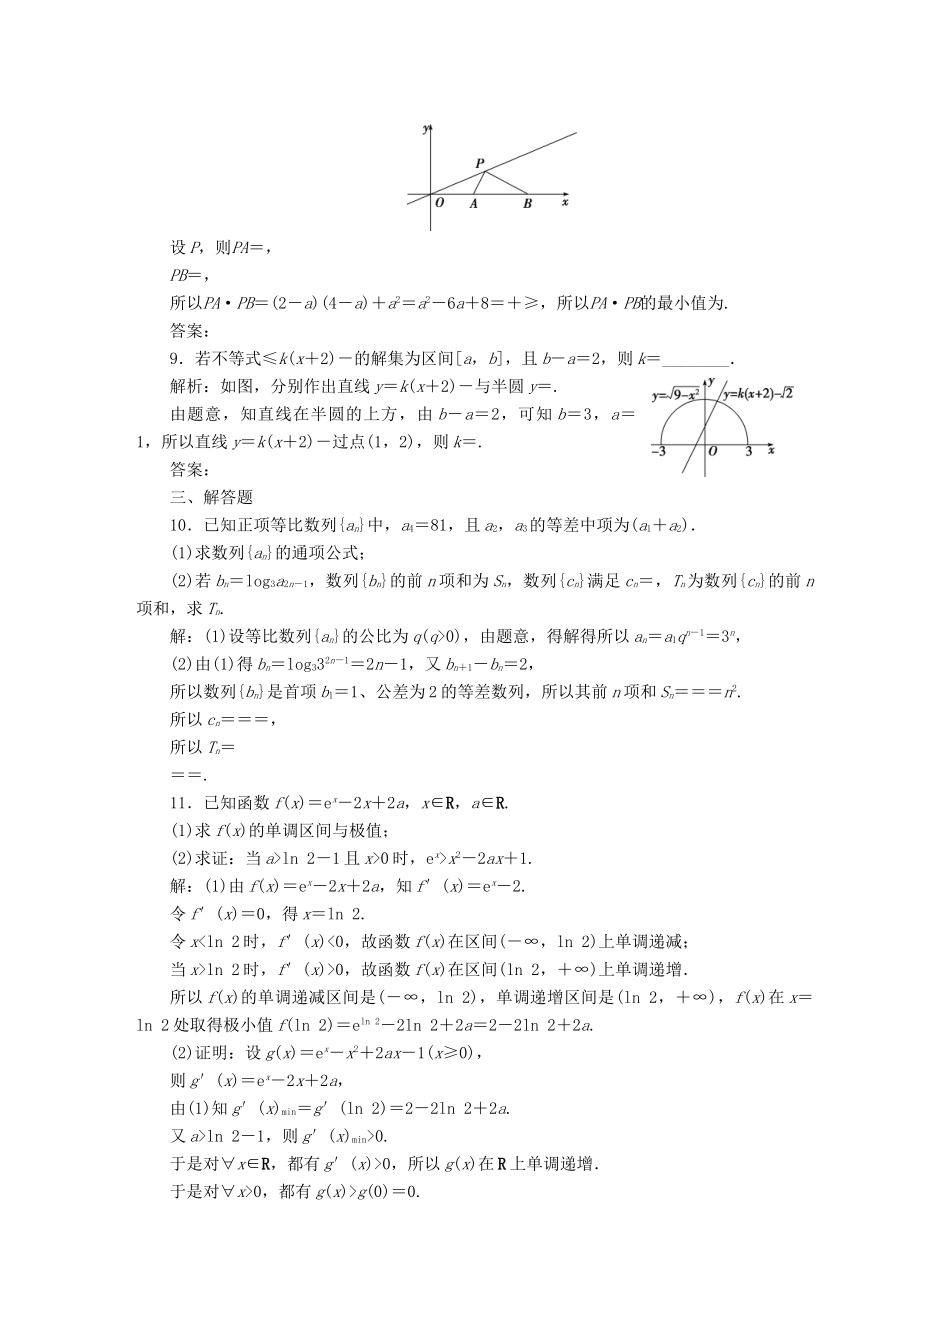 y
P
O A B x
设 P，则PA＝，
PB＝，
所以PA·PB＝(2－a)(4－a)＋a²＝a²－6a＋8＝＋≥，所以PA·PB的最小值为.
答案：
9．若不等式≤k(x＋2)－的解集为区间[a，b]，且 b－a＝2，则 k＝________.
解析：如图，分别作出直线 y＝k(x＋2)－与半圆 y＝.
由题意，知直线在半圆的上方，由 b－a＝2，可知 b＝3，a＝
1，所以直线 y＝k(x＋2)－过点(1，2)，则 k＝.
y=√9−x² y y=k(x+2)−√2
−3 O 3 x
答案：
三、解答题
10．已知正项等比数列{aₙ}中，a₄＝81，且 a₂，a₃的等差中项为(a₁＋a₂).
(1)求数列{aₙ}的通项公式；
(2)若 bₙ＝log₃a₂ₙ₋₁，数列{bₙ}的前 n 项和为 Sₙ，数列{cₙ}满足 cₙ＝，Tₙ为数列{cₙ}的前 n
项和，求 Tₙ.
解：(1)设等比数列{aₙ}的公比为 q(q>0)，由题意，得解得所以 aₙ＝a₁qⁿ⁻¹＝3ⁿ，
(2)由(1)得 bₙ＝log₃3²ⁿ⁻¹＝2n－1，又 bₙ₊₁－bₙ＝2，
所以数列{bₙ}是首项 b₁＝1、公差为 2 的等差数列，所以其前 n 项和 Sₙ＝＝＝n².
所以 cₙ＝＝＝，
所以 Tₙ＝
＝＝.
11．已知函数 f(x)＝eˣ－2x＋2a，x∈R，a∈R.
(1)求 f(x)的单调区间与极值；
(2)求证：当 a>ln 2－1 且 x>0 时，eˣ>x²－2ax＋1.
解：(1)由 f(x)＝eˣ－2x＋2a，知 f′(x)＝eˣ－2.
令 f′(x)＝0，得 x＝ln 2.
令 x<ln 2 时，f′(x)<0，故函数 f(x)在区间(－∞，ln 2)上单调递减；
当 x>ln 2 时，f′(x)>0，故函数 f(x)在区间(ln 2，＋∞)上单调递增.
所以 f(x)的单调递减区间是(－∞，ln 2)，单调递增区间是(ln 2，＋∞)，f(x)在 x＝
ln 2 处取得极小值 f(ln 2)＝eˡⁿ ²－2ln 2＋2a＝2－2ln 2＋2a.
(2)证明：设 g(x)＝eˣ－x²＋2ax－1(x≥0)，
则 g′(x)＝eˣ－2x＋2a，
由(1)知 g′(x)ₘᵢₙ＝g′(ln 2)＝2－2ln 2＋2a.
又 a>ln 2－1，则 g′(x)ₘᵢₙ>0.
于是对∀x∈R，都有 g′(x)>0，所以 g(x)在 R 上单调递增.
于是对∀x>0，都有 g(x)>g(0)＝0.